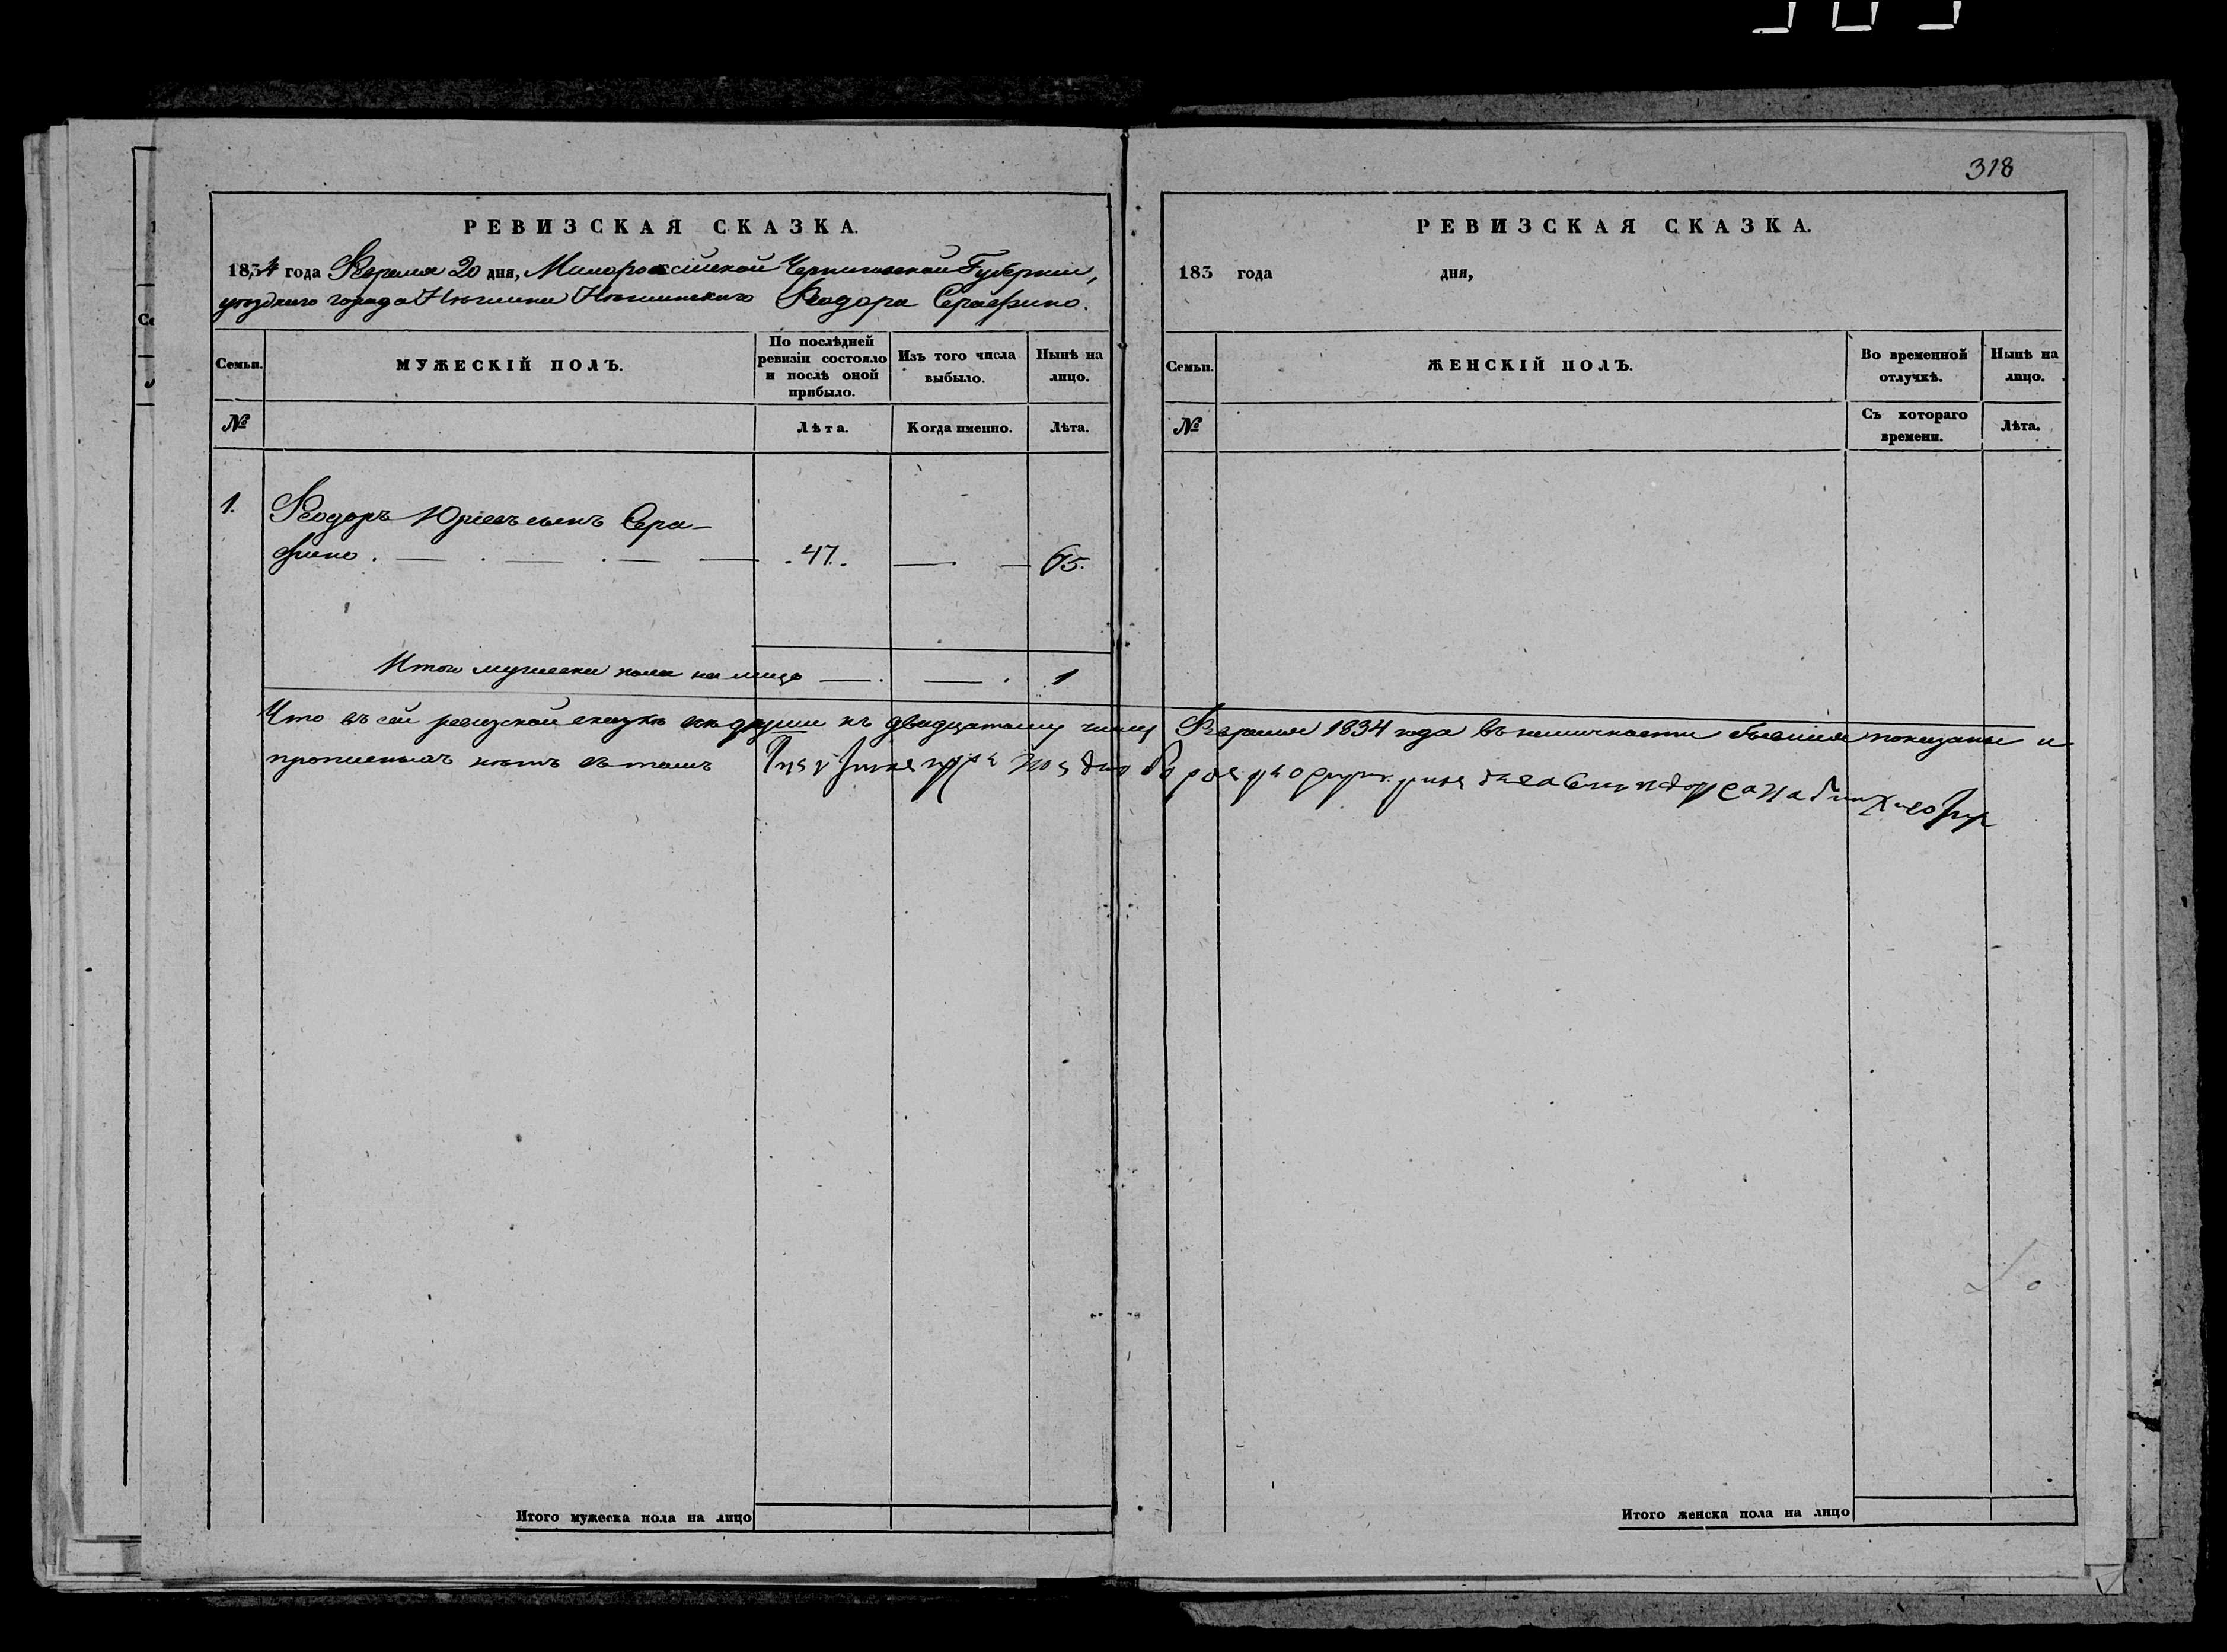 318
РЕВИЗСКАЯ СКАЗКА.
1834 года Февраля 20 дня, Малороссійской Черниговской Губерніи,
уѣзднаго города Нѣжина Нѣжинскаго Феодора Серафино.
Семьи.
МУЖЕСКІЙ ПОЛЪ.
По послѣдней
ревизіи состояло
и послѣ оной
прибыло.
Изъ того числа
выбыло.
Нынѣ на
лицо.
№
Лѣта.
Когда именно.
Лѣта.
1. Феодоръ Юрьевъ сынъ Сера-
фино. 47. 65.
Итого мужеска пола на лицо 1
РЕВИЗСКАЯ СКАЗКА.
183 года дня,
Семьи.
ЖЕНСКІЙ ПОЛЪ.
Во временной
отлучкѣ.
Нынѣ на
лицо.
№
Съ котораго
времени.
Лѣта.
Что въ сей ревизской сказкѣ всѣ души къ двадцатому числу Февраля 1834 года въ наличности бывшія показаны и
прописныхъ нѣтъ въ томъ
Итого мужеска пола на лицо
Итого женска пола на лицо